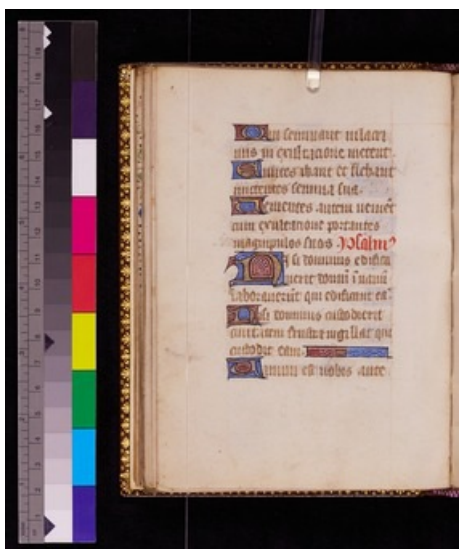 Qui seminant in lacri
mis in exultacione metent
Euntes ibant et flebant
mittentes semina sua
Venientes autem veniēt
cum exultatione portantes
manipulos suos Psalm⁹
Nisi dominus edifica
verit domū ī vanū
laboraverūt qui edificant eā
Nisi dominus custodierit
civitatem frustra vigillat qui
custodit eam
Vanum est vobis ante